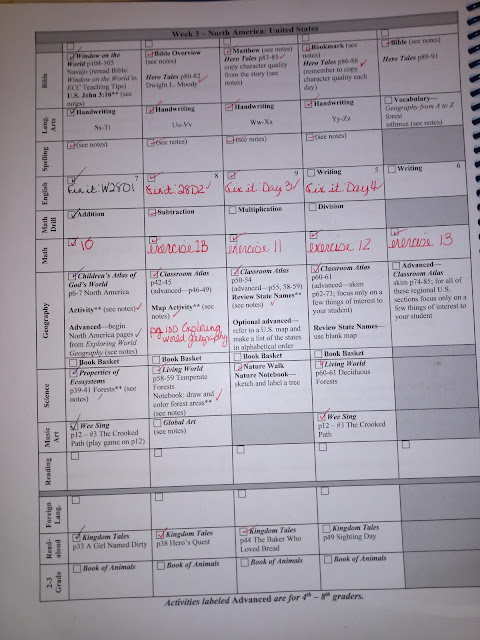 Week 3 – North America: United States
Bible
Window on the World p104-105
Navajo (reread Bible: Window on the World in ECC Teaching Tips)
U.S. John 3:16** (see notes)
Bible Overview (see notes)
Hero Tales p80-82
Dwight L. Moody
Matthew (see notes)
Hero Tales p83-85
copy character quality from the story (see notes)
Bookmark (see notes)
Hero Tales p86-88
(remember to copy character quality each day)
Bible (see notes)
Hero Tales p89-91
Lang. Arts
Handwriting
Ss-Tt
Handwriting
Uu-Vv
Handwriting
Ww-Xx
Handwriting
Yy-Zz
Vocabulary—
Geography from A to Z
forest
isthmus (see notes)
Spelling
(see notes)
(see notes)
(see notes)
(see notes)
English
7
Fix it: W28D1
8
Fix it: 28D2
9
Fix it: Day 3
Writing 5
Fix it: Day 4
Writing 6
Math Drill
Addition
Subtraction
Multiplication
Division
Math
10
exercise 1B
exercise 11
exercise 12
exercise 13
Geography
Children's Atlas of God's World
p6-7 North America
Activity** (see notes)
Advanced—begin North America pages from Exploring World Geography (see notes)
Classroom Atlas
p42-45
(advanced—p46-49)
Map Activity** (see notes)
pg 100 Exploring world geography
Classroom Atlas
p50-54
(advanced—p55, 58-59)
Review State Names** (see notes)
Optional advanced—refer to a U.S. map and make a list of the states in alphabetical order
Classroom Atlas
p60-61
(advanced—skim p62-73; focus only on a few things of interest to your student)
Review State Names—use blank map
Advanced—
Classroom Atlas
skim p74-85; for all of these regional U.S. sections focus only on a few things of interest to your student
Science
Book Basket
Properties of Ecosystems
p39-41 Forests** (see notes)
Book Basket
Living World
p58-59 Temperate Forests
Notebook: draw and color forest areas** (see notes)
Book Basket
Nature Walk
Nature Notebook—sketch and label a tree
Book Basket
Living World
p60-61 Deciduous Forests
Music Art
Wee Sing
p12 – #3 The Crooked Path (play game on p12)
Global Art
(see notes)
Wee Sing
p12 – #3 The Crooked Path
Reading
Foreign Lang.
Read-aloud
Kingdom Tales
p33 A Girl Named Dirty
Kingdom Tales
p38 Hero's Quest
Kingdom Tales
p44 The Baker Who Loved Bread
Kingdom Tales
p49 Sighting Day
2-3 Grade
Book of Animals
Book of Animals
Book of Animals
Book of Animals
Activities labeled Advanced are for 4th – 8th graders.